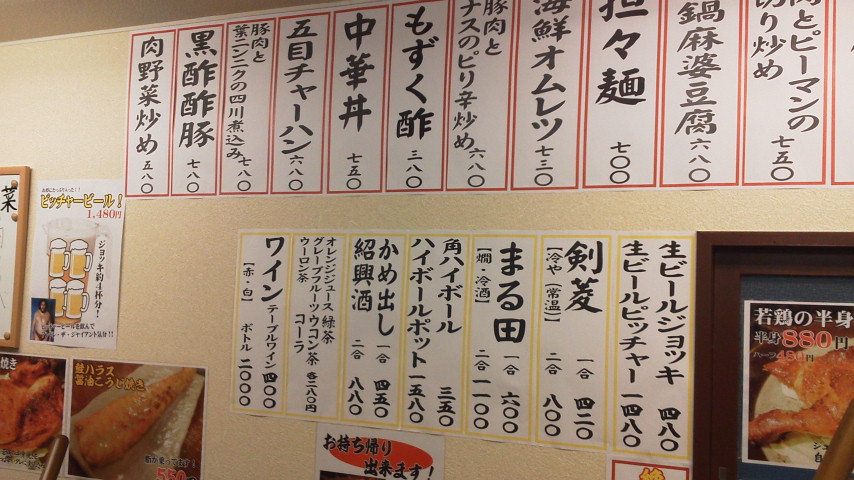 肉とピーマンの
切り炒め
七五〇
鍋麻婆豆腐
六八〇
担々麺
七〇〇
海鮮オムレツ
七三〇
豚肉と
ナスのピリ辛炒め
六八〇
もずく酢
三八〇
中華丼
七五〇
五目チャーハン
六八〇
豚肉と
葉ニンニクの四川煮込み
七八〇
黒酢酢豚
七八〇
肉野菜炒め
五八〇
生ビールジョッキ 四八〇
生ビールピッチャー 一四八〇
剣菱
【冷や(常温)】
一合 四二〇
二合 八〇〇
まる田
【燗・冷酒】
一合 六〇〇
二合 一一〇〇
角ハイボール 三五〇
ハイボールポット 一五八〇
かめ出し
紹興酒
一合 四五〇
二合 八八〇
オレンジジュース 緑茶
グレープフルーツ ウコン茶
ウーロン茶 コーラ
各二八〇円
ワイン
【赤・白】
テーブルワイン 四〇〇
ボトル 二〇〇〇
菜
お得にたっぷり入っと!!
ピッチャービール!
1,480円
ジョッキ約4杯分!
焼き
鮭ハラス
醤油こうじ焼き
脂が乗ってます!
550
お持ち帰り
出来ます!
若鶏の半身
半身880円
ハーフ480円